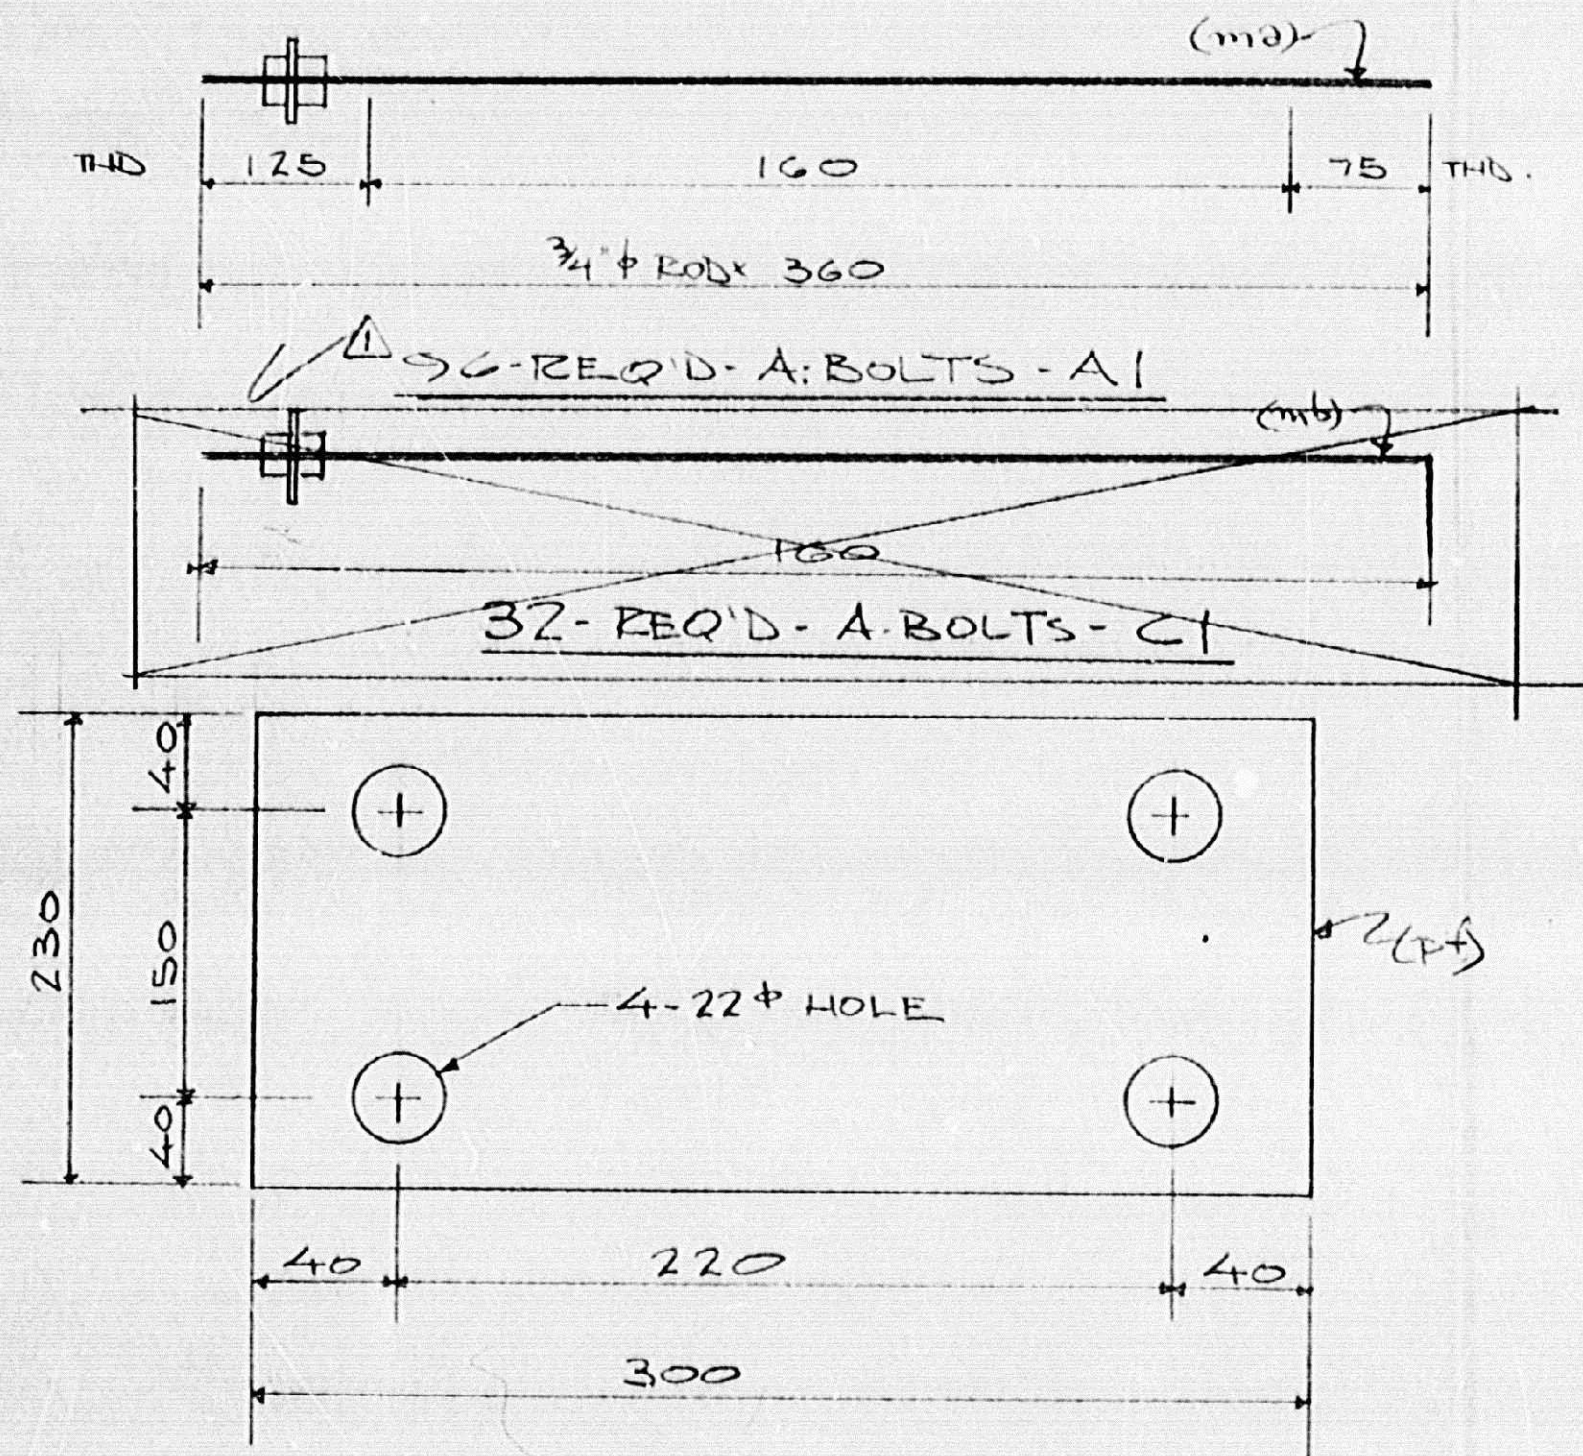 (ma)
THD 125 160 75 THD.
3/4" ϕ ROD x 360
1 96-REQ'D- A.BOLTS - A1
(mb)
160
32- REQ'D- A.BOLTS- C1
40
230
150
(pf)
4-22ϕ HOLE
40
40 220 40
300